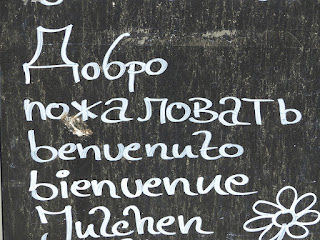 Добро
пожаловать
benvenuto
bienvenue